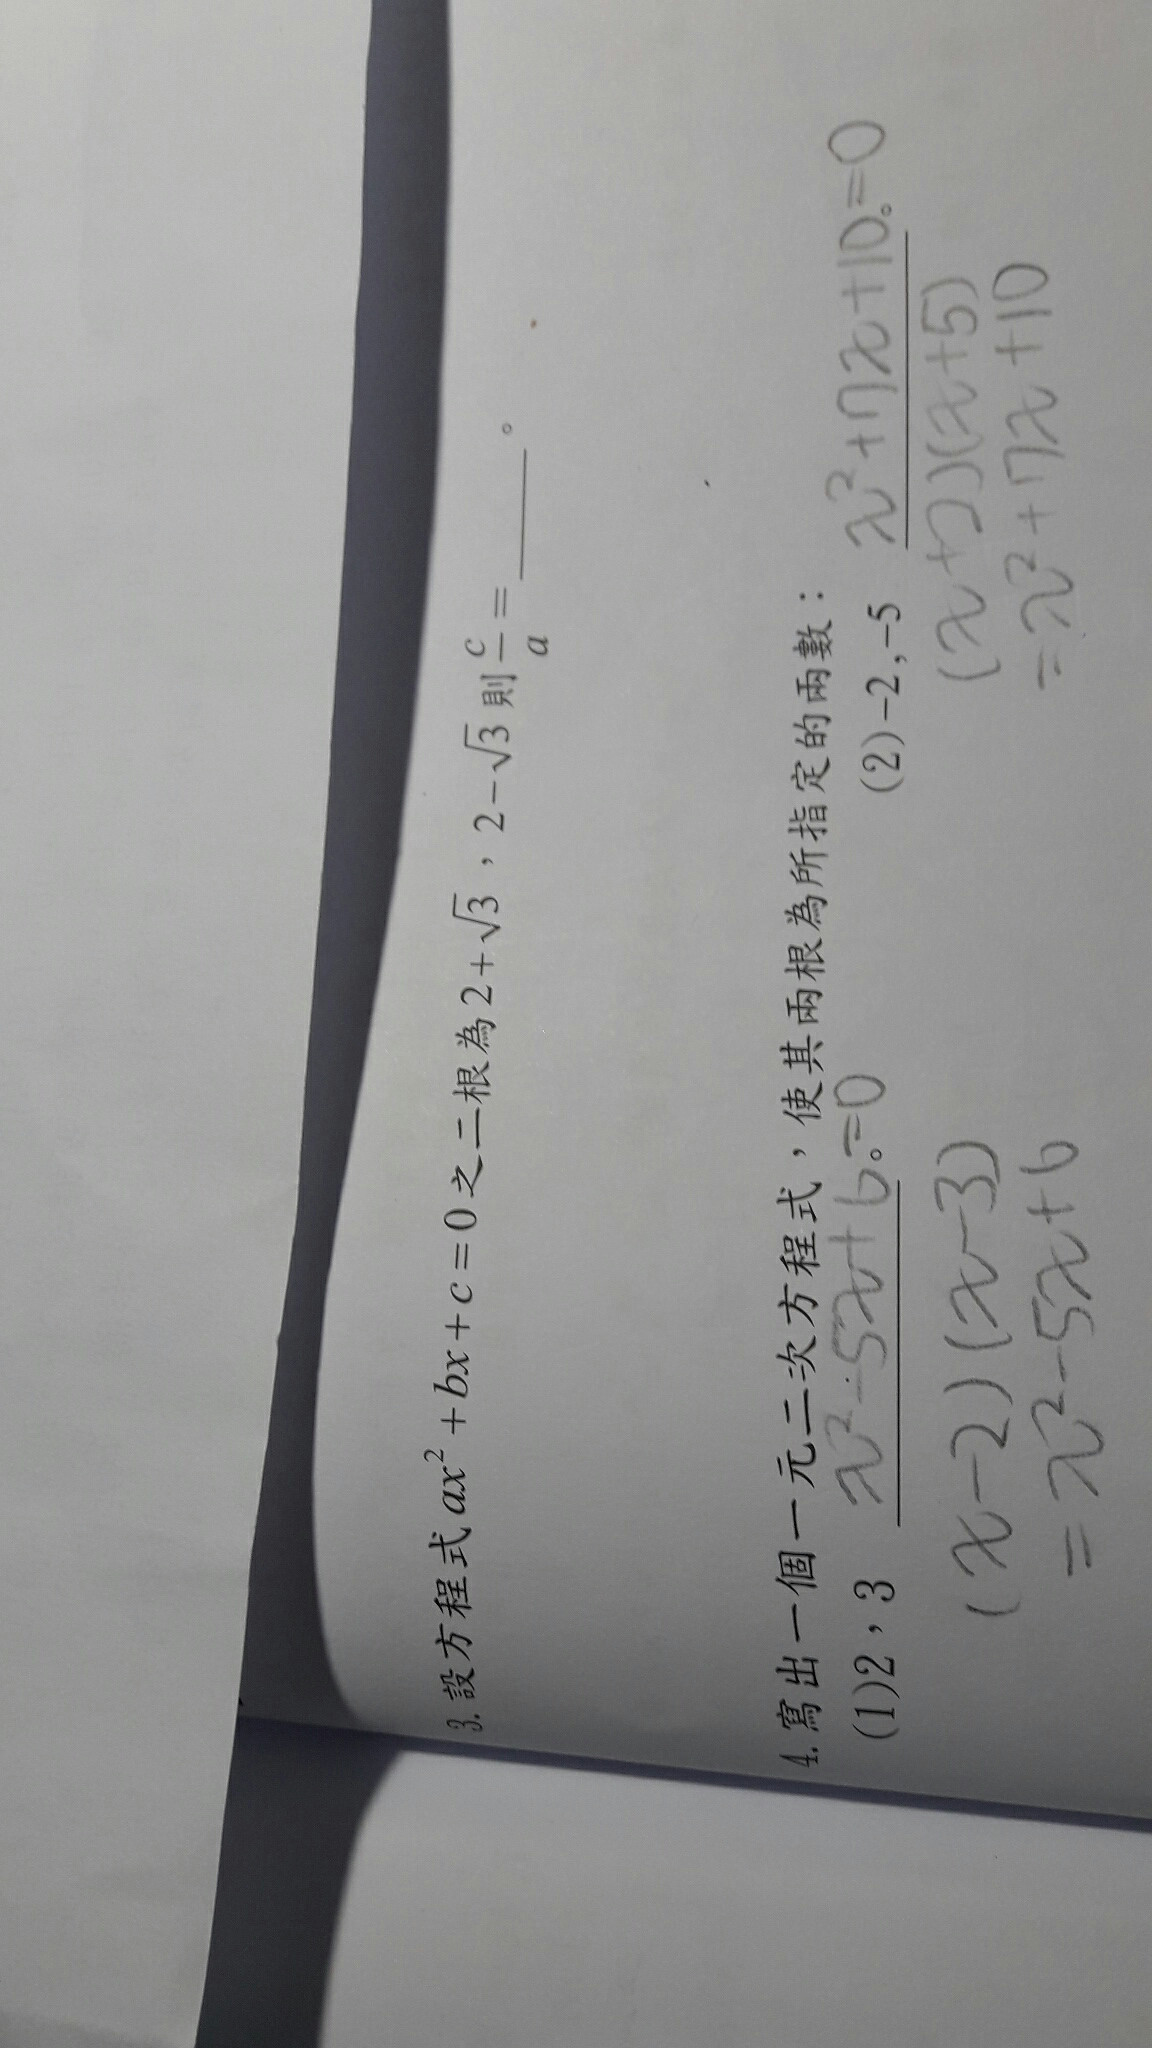 3. 設方程式ax²+bx+c=0之二根為2+√3，2-√3則c/a=____。
4. 寫出一個一元二次方程式，使其兩根為所指定的兩數：
(1)2，3 x²-5x+6。=0 (2)-2,-5 x²+7x+10。=0
(x-2)(x-3) (x+2)(x+5)
=x²-5x+6 =x²+7x+10